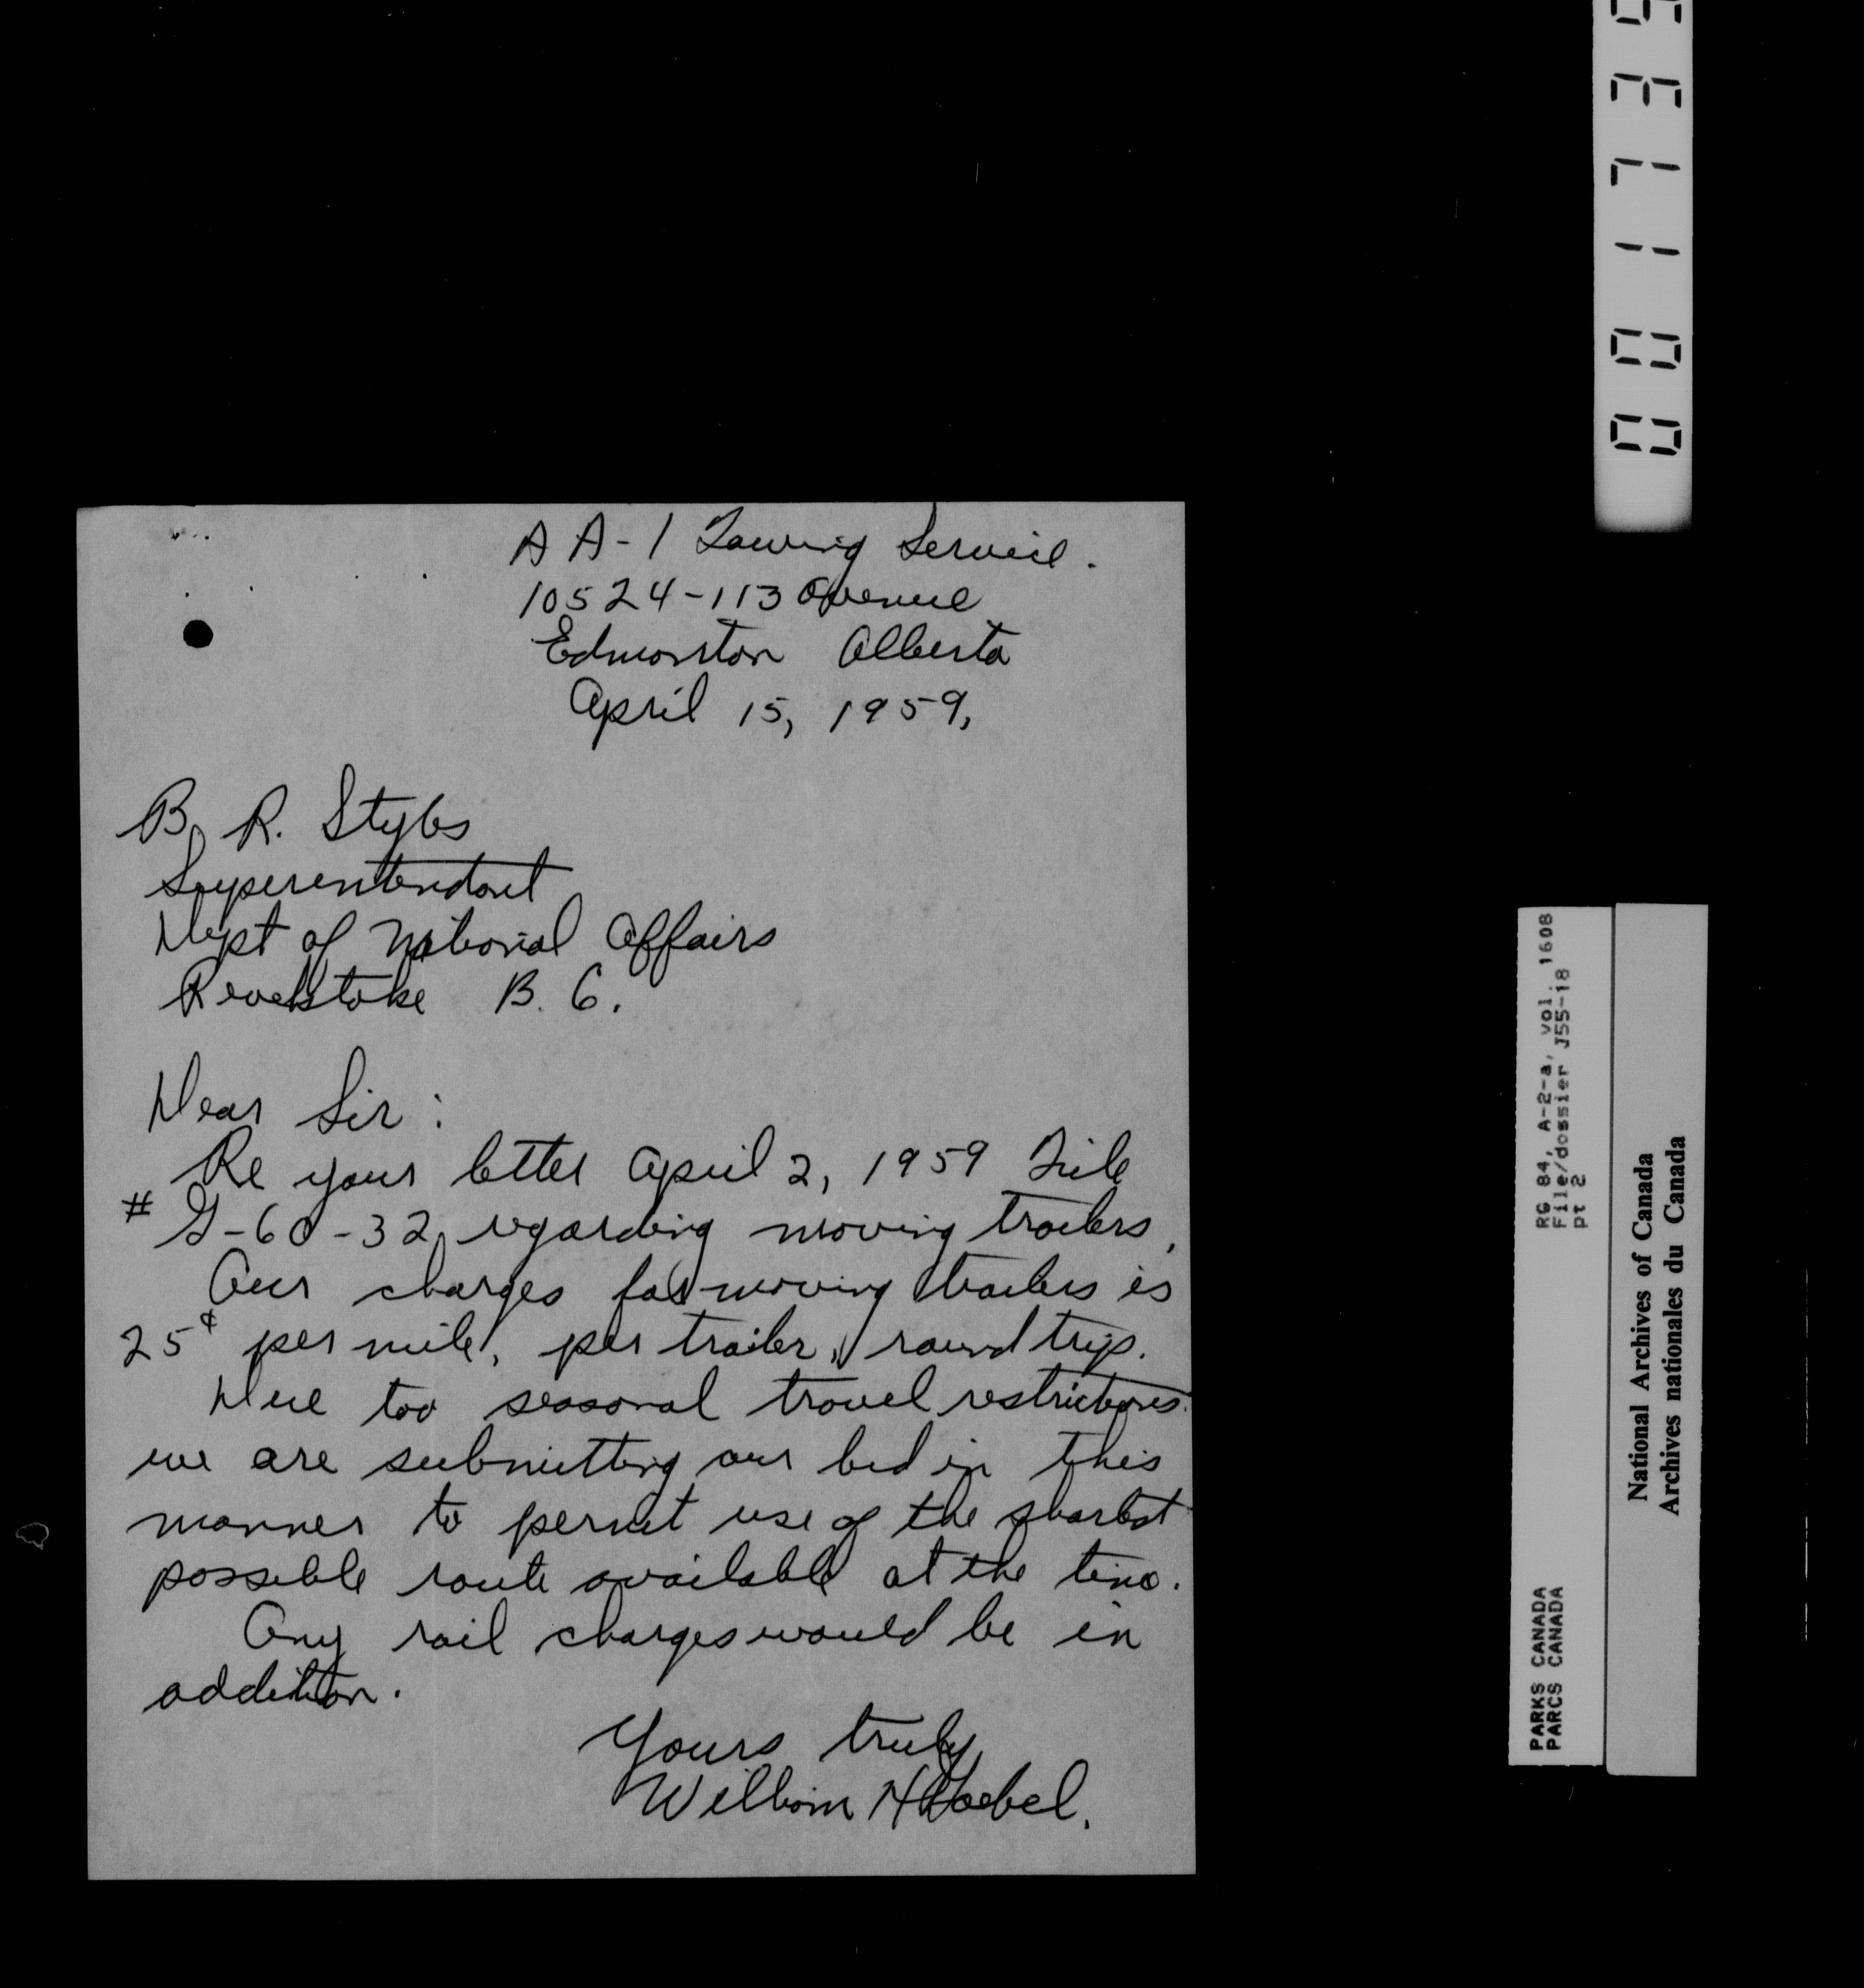 A A-1 Towing Service.
10524-113 Avenue
Edmonton Alberta
April 15, 1959,
B. R. Styles
Superentendent
Dept of National Affairs
Revelstoke B. C.
Dear Sir:
Re your letter April 2, 1959 File
# G-60-32, regarding moving trailers.
Our charges for moving trailers is
25¢ per mile, per trailer, round trip.
Due too seasonal travel restrictions
we are submitting our bid in this
manner to permit use of the shortest
possible route available at the time.
Any rail charges would be in
addition.
Yours truly
William H
RG 84, A-2-a, vol. 1608
File/dossier J55-18
pt 2
PARKS CANADA
PARCS CANADA
National Archives of Canada
Archives nationales du Canada